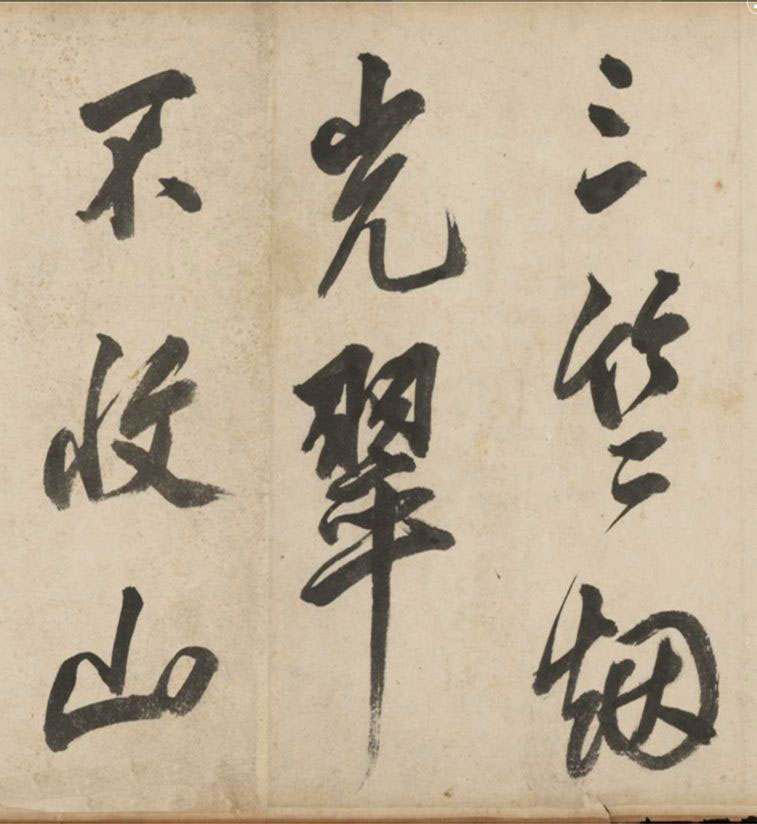 三竺烟
光翠
不收山